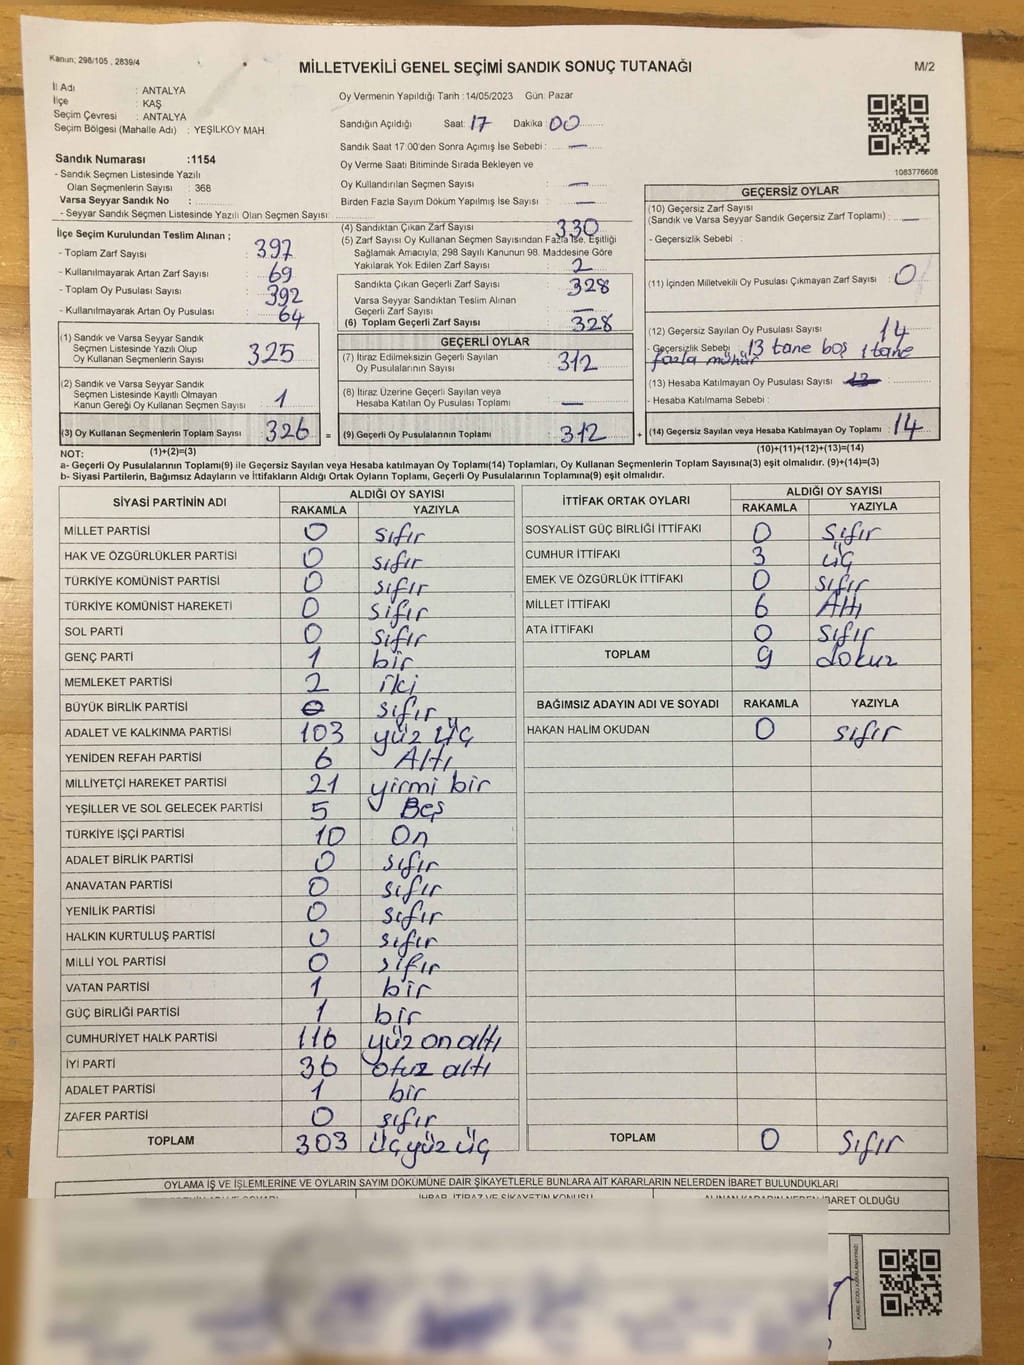 Kanun; 298/105 , 2839/4
MİLLETVEKİLİ GENEL SEÇİMİ SANDIK SONUÇ TUTANAĞI
M/2
İl Adı : ANTALYA
İlçe : KAŞ
Seçim Çevresi : ANTALYA
Seçim Bölgesi (Mahalle Adı) : YEŞİLKÖY MAH.
Sandık Numarası :1154
- Sandık Seçmen Listesinde Yazılı
Olan Seçmenlerin Sayısı : 368
Varsa Seyyar Sandık No :
- Seyyar Sandık Seçmen Listesinde Yazılı Olan Seçmen Sayısı:
Oy Vermenin Yapıldığı Tarih :14/05/2023 Gün: Pazar
Sandığın Açıldığı Saat: 17 Dakika: 00
Sandık Saat 17:00'den Sonra Açımış İse Sebebi : —
Oy Verme Saati Bitiminde Sırada Bekleyen ve
Oy Kullandırılan Seçmen Sayısı : —
Birden Fazla Sayım Döküm Yapılmış İse Sayısı : —
1083776608
İlçe Seçim Kurulundan Teslim Alınan ;
- Toplam Zarf Sayısı : 397
- Kullanılmayarak Artan Zarf Sayısı : 69
- Toplam Oy Pusulası Sayısı : 392
- Kullanılmayarak Artan Oy Pusulası : 64
(1) Sandık ve Varsa Seyyar Sandık
Seçmen Listesinde Yazılı Olup
Oy Kullanan Seçmenlerin Sayısı : 325
(2) Sandık ve Varsa Seyyar Sandık
Seçmen Listesinde Kayıtlı Olmayan
Kanun Gereği Oy Kullanan Seçmen Sayısı : 1
(3) Oy Kullanan Seçmenlerin Toplam Sayısı : 326 =
(4) Sandıktan Çıkan Zarf Sayısı : 330
(5) Zarf Sayısı Oy Kullanan Seçmen Sayısından Fazla İse, Eşitliği
Sağlamak Amacıyla, 298 Sayılı Kanunun 98. Maddesine Göre
Yakılarak Yok Edilen Zarf Sayısı : 2
Sandıkta Çıkan Geçerli Zarf Sayısı : 328
Varsa Seyyar Sandıktan Teslim Alınan
Geçerli Zarf Sayısı : —
(6) Toplam Geçerli Zarf Sayısı : 328
GEÇERLİ OYLAR
(7) İtiraz Edilmeksizin Geçerli Sayılan
Oy Pusulalarının Sayısı : 312
(8) İtiraz Üzerine Geçerli Sayılan veya
Hesaba Katılan Oy Pusulası Toplamı : —
(9) Geçerli Oy Pusulalarının Toplamı : 312 +
GEÇERSİZ OYLAR
(10) Geçersiz Zarf Sayısı
(Sandık ve Varsa Seyyar Sandık Geçersiz Zarf Toplamı) : —
- Geçersizlik Sebebi :
(11) İçinden Milletvekili Oy Pusulası Çıkmayan Zarf Sayısı : 0
(12) Geçersiz Sayılan Oy Pusulası Sayısı : 14
- Geçersizlik Sebebi : 13 tane boş 1 tane
fazla mühür
(13) Hesaba Katılmayan Oy Pusulası Sayısı :
- Hesaba Katılmama Sebebi :
(14) Geçersiz Sayılan veya Hesaba Katılmayan Oy Toplamı : 14
NOT: (1)+(2)=(3) (10)+(11)+(12)+(13)=(14)
a- Geçerli Oy Pusulalarının Toplamı(9) ile Geçersiz Sayılan veya Hesaba katılmayan Oy Toplamı(14) Toplamları, Oy Kullanan Seçmenlerin Toplam Sayısına(3) eşit olmalıdır. (9)+(14)=(3)
b- Siyasi Partilerin, Bağımsız Adayların ve İttifakların Aldığı Ortak Oyların Toplamı, Geçerli Oy Pusulalarının Toplamına(9) eşit olmalıdır.
SİYASİ PARTİNİN ADI ALDIĞI OY SAYISI
RAKAMLA YAZIYLA
MİLLET PARTİSİ 0 sıfır
HAK VE ÖZGÜRLÜKLER PARTİSİ 0 sıfır
TÜRKİYE KOMÜNİST PARTİSİ 0 sıfır
TÜRKİYE KOMÜNİST HAREKETİ 0 sıfır
SOL PARTİ 0 sıfır
GENÇ PARTİ 1 bir
MEMLEKET PARTİSİ 2 iki
BÜYÜK BİRLİK PARTİSİ 0 sıfır
ADALET VE KALKINMA PARTİSİ 103 yüz üç
YENİDEN REFAH PARTİSİ 6 Altı
MİLLİYETÇİ HAREKET PARTİSİ 21 yirmi bir
YEŞİLLER VE SOL GELECEK PARTİSİ 5 Beş
TÜRKİYE İŞÇİ PARTİSİ 10 On
ADALET BİRLİK PARTİSİ 0 sıfır
ANAVATAN PARTİSİ 0 sıfır
YENİLİK PARTİSİ 0 sıfır
HALKIN KURTULUŞ PARTİSİ 0 sıfır
MİLLİ YOL PARTİSİ 0 sıfır
VATAN PARTİSİ 1 bir
GÜÇ BİRLİĞİ PARTİSİ 1 bir
CUMHURİYET HALK PARTİSİ 116 yüz on altı
İYİ PARTİ 36 otuz altı
ADALET PARTİSİ 1 bir
ZAFER PARTİSİ 0 sıfır
TOPLAM 303 üç yüz üç
İTTİFAK ORTAK OYLARI ALDIĞI OY SAYISI
RAKAMLA YAZIYLA
SOSYALİST GÜÇ BİRLİĞİ İTTİFAKI 0 sıfır
CUMHUR İTTİFAKI 3 üç
EMEK VE ÖZGÜRLÜK İTTİFAKI 0 sıfır
MİLLET İTTİFAKI 6 Altı
ATA İTTİFAKI 0 sıfır
TOPLAM 9 dokuz
BAĞIMSIZ ADAYIN ADI VE SOYADI RAKAMLA YAZIYLA
HAKAN HALİM OKUDAN 0 sıfır
TOPLAM 0 Sıfır
OYLAMA İŞ VE İŞLEMLERİNE VE OYLARIN SAYIM DÖKÜMÜNE DAİR ŞİKAYETLERLE BUNLARA AİT KARARLARIN NELERDEN İBARET BULUNDUKLARI
İHBAR, İTİRAZ VE ŞİKAYETİN KONUSU
ALINAN KARARIN NEDEN İBARET OLDUĞU